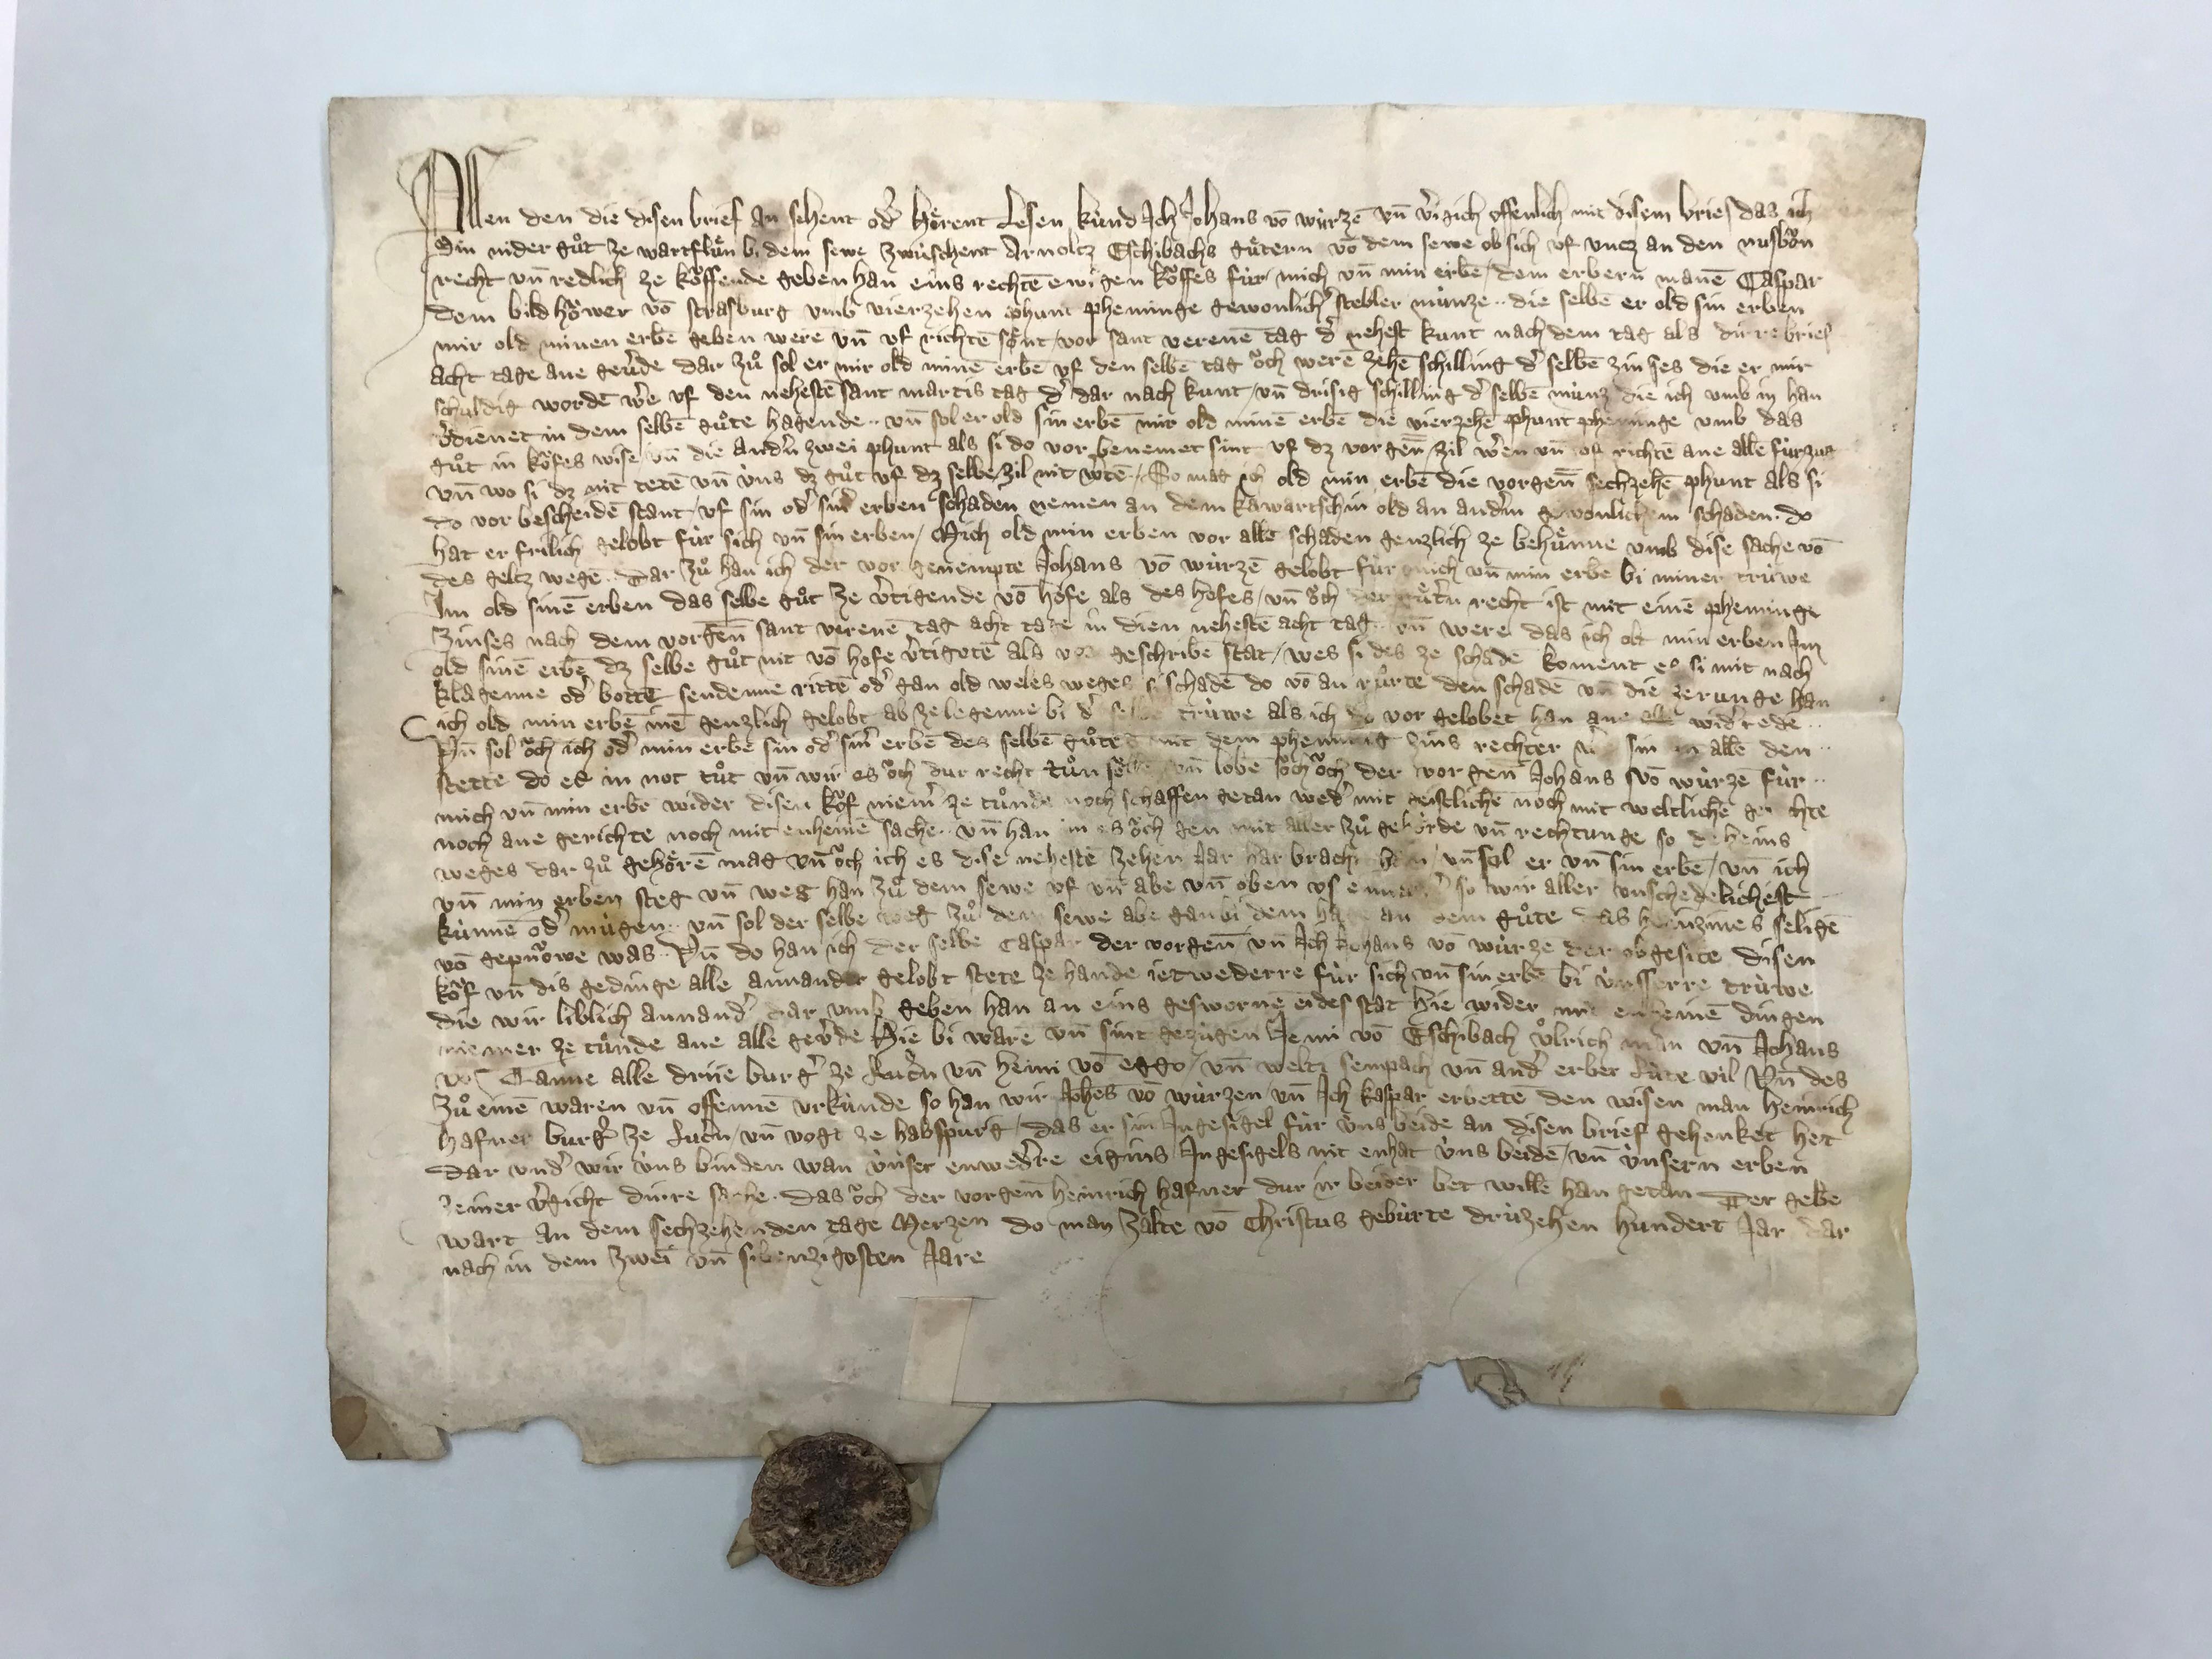 Allen den die disen brief an sehent od' hoͤrent Lesen kúnd Ich Johans võ wúrzẽ vñ v'gich offenlich mit disem brief das ich
Min nider guͦt ze wartfluͤn bi dem sewe zwúschent Arnoltz Eschibachs guͤtern võ dem sewe ob sich vf vncz an den nusboͮn
recht vñ redlich ze koͮffende geben han eins rechtẽ ewigen koͮffes fúr mich vñ min erbẽ / dem erbern manẽ Caspar
dem bildhoͮwer võ strasburg vmb vierzehen phunt pheninge gewonlich' stebler múnze .. die selbẽ er old sin erben
mir old minen erbẽ geben were vñ vf richtẽ soͤnt / vor sant verenẽ tag d' nehest kunt nach dem tag als dirre brief
acht tage ane gev'de dar zuͦ sol er mir old minẽ erbẽ vf den selbẽ tag oͮch werẽ zehẽ schilling d' selbẽ zinses die er mir
schuldig wordẽ w'e vf den nehestẽ sant martis tag d' dar nach kunt / vñ drisig schilling d' selbẽ múnz die ich vmb in han
v'dienet in dem selbẽ guͦte hagende .. vñ sol er old sin erbẽ mir old minẽ erbẽ die vierzehẽ phunt pheninge vmb das
guͦt in koͮfes wise vñ die and'n zwei phunt als si do vor benemet sint vf dz vorgeñ zil w'en vñ vf richtẽ ane alle fúrzug
vñ wo si dz nit tetẽ vñ úns dz guͦt vf dz selbe zil nit w'tẽ / So mag ich old min erbẽ die vorgeñ sechzehẽ phunt als si
do vor bescheidẽ stant / vf sin od' sin' erben schaden nemen an dem kawartschin old an and'm gewonlichem schaden . do
hat er frilich gelobt fúr sich vñ sin erben / Mich old min erben vor allẽ schaden genzlich ze behuͤnne vmb dise sache võ
des geltz wegẽ .. Dar zuͦ han ich der vor genempte Johans võ wúrzẽ gelobt fúr mich vñ min erbẽ bi miner trúwe
Im old sinẽ erben das selbe guͦt ze v'tigende võ hofe als des hofes / vñ oͮch der guͤt'n recht ist mit einẽ pheninge
zinses nach dem vorgeñ sant verenẽ tag acht tage in dien nehestẽ acht tagẽ vñ were das ich old min erben Im
old sinẽ erbẽ dz selbe guͦt nit võ hofe v'tigotẽ als vor geschribẽ stat / wes si des ze schadẽ koment es si mit nach
klagenne od' bottẽ sendenne rittẽ od' gan old weles weges si schadẽ do võ an ruͦrte den schadẽ vñ die zerunge han
ich old min erbẽ inẽ genzlich gelobt ab ze legenne bi d' selbẽ trúwe als ich do vor gelobet han ane alle wid'rede ..
Vñ sol oͮch ich od' min erbẽ sin od' sin' erbẽ des selbẽ guͦtes mit dem phenning zins rechter wer sin an allẽ den ..
stette do es in not tuͦt vñ wir es oͮch dur recht tuͦn soͤllẽ vñ lobẽ ich oͮch der vorgeñ Johans võ wúrzẽ fúr ..
mich vñ min erbẽ wider disen koͮf niem' ze tuͦnde noch schaffen getan wed' mit geistlichẽ noch mit weltlichẽ gerichte
noch ane gerichte noch mit enheinẽ sache .. vñ han in es oͮch gen mit aller zuͦ gehoͤrde vñ rechtunge so deheins
weges dar zuͦ gehoͤrẽ mag vñ oͮch ich es dise nehestẽ zehen Jar har bracht han / vñ sol er vñ sin erbẽ / vñ ich
vñ min erben steg vñ weg han zuͦ dem sewe vf vñ abe vñ oben vs so wir aller vnschedelichest
kúnnẽ od' múgen .. vñ sol der selbe weg zuͦ dem sewe abe gan bi dem hage an dem guͦte das heinzines seligẽ
võ gepnoͮwe was .. Vñ do han ich der selbe Caspar der vorgeñ vñ Ich Johans võ wúrzẽ der obgesite disen
koͮf vñ dis gedinge alle annander gelobt stete ze hande ietwederre fúr sich vñ sin erbẽ bi únsserre trúwe
die wir liblich annand' dar vmb geben han an eins geswornẽ eides stat hie wider mit enheinẽ dingen
niemer ze tuͦnde ane alle gev'de Hie bi warẽ vñ sint gezúgen Jenni võ Eschibach uͦlrich man vñ Johans
võ Tanne alle drúe burg' ze Luc'n vñ heini võ eggo / vñ welti sempach vñ and' erber lúte vil Vñ des
zuͦ einẽ waren vñ offennẽ vrkúnde so han wir Johes võ wúrzen vñ Ich kaspar erbettẽ den wisen man heinrich
hafner burg' ze Luc'n / vñ vogt ze habspurg / das er sin Ingesigel fúr úns beide an disen brief gehenket het
Dar vnd' wir úns binden wan únser enwed're eigins Ingesigels nit enhat úns beidẽ / vñ únsern erben
zeiner v'gicht dirre sache . das oͮch der vorgeñ heinrich hafner dur ir beider bet willẽ han getan Der gebẽ
wart an dem sechzehenden tage Merzen do man zalte võ Christus gebúrte drúzehen hundert Jar dar
nach in dem zwei vñ sibenzigosten Jare